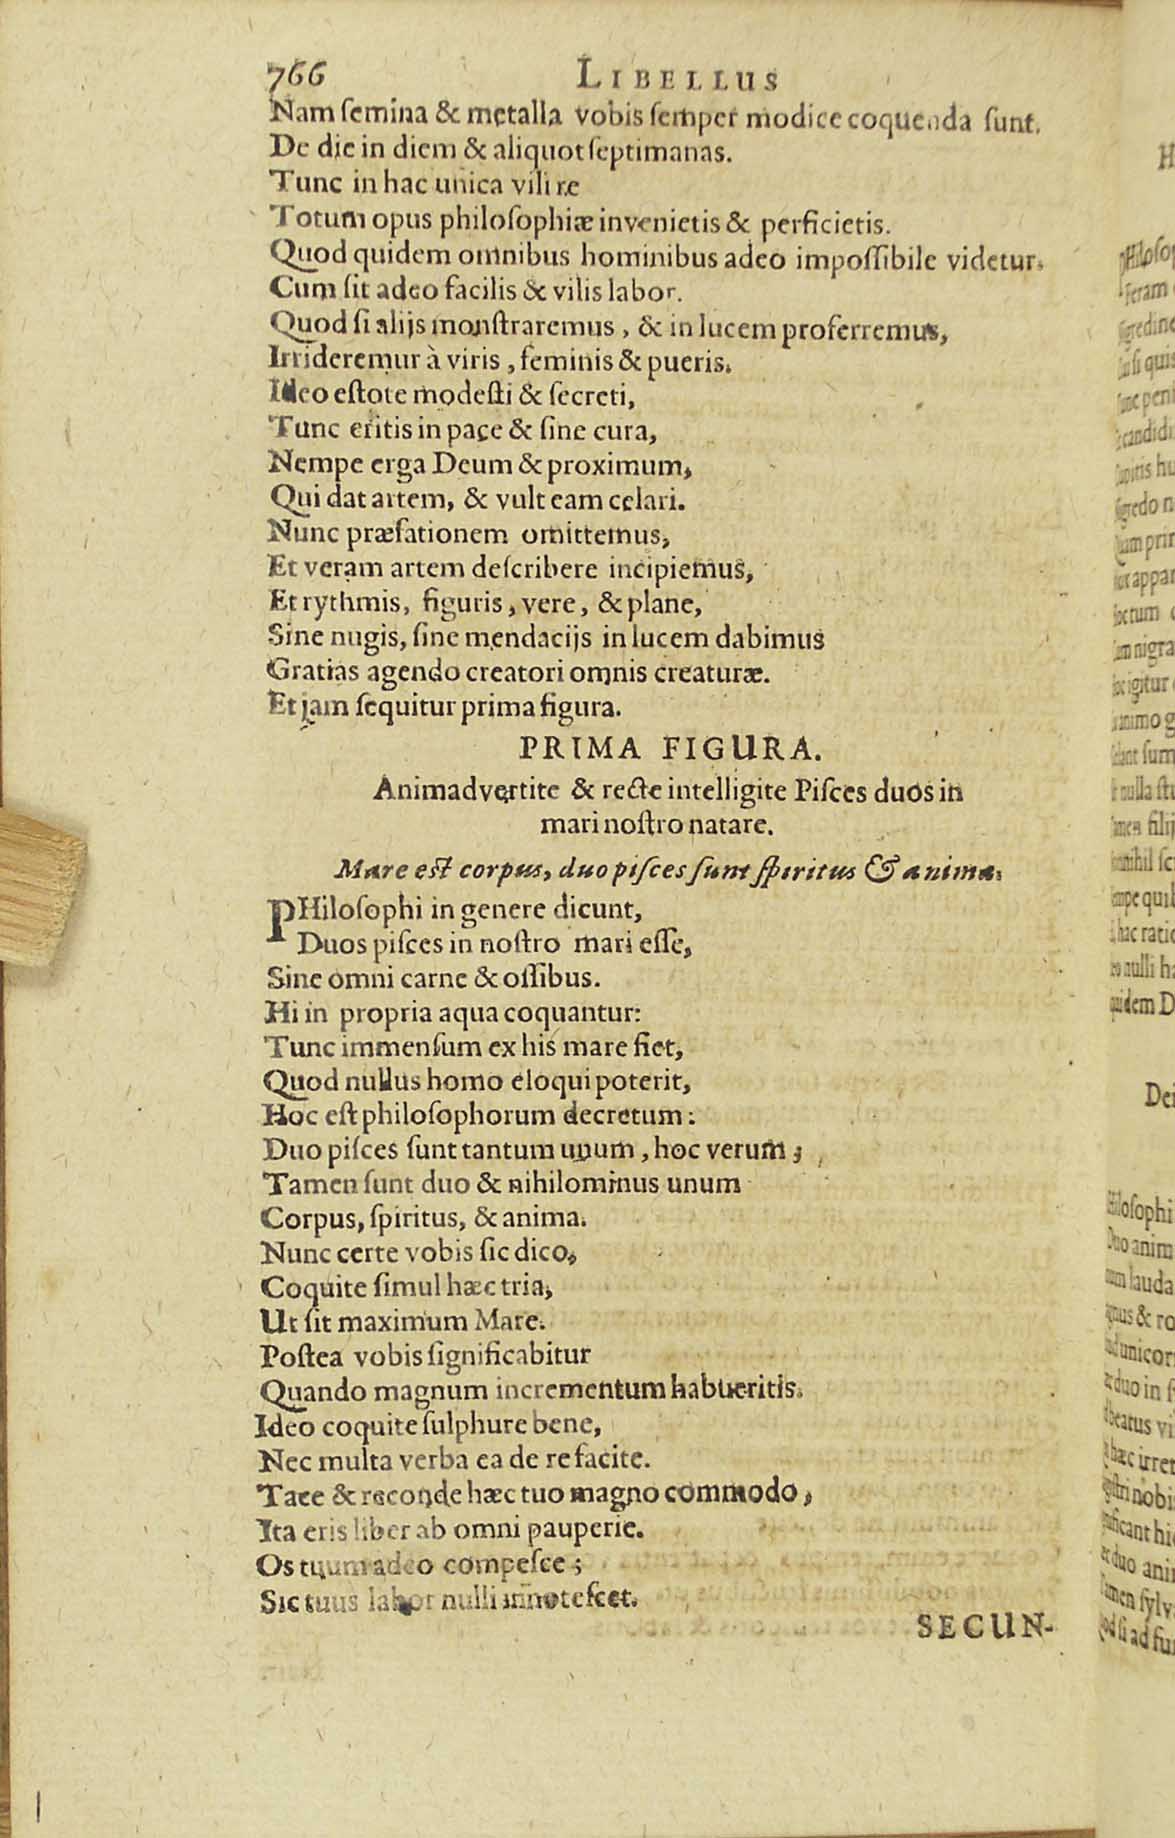 766 LIBELLUS
Nam ſemina & metalla vobis ſemper modice coquenda ſunt.
De die in diem & aliquot ſeptimanas.
Tunc in hac unica vili re
Totum opus philoſophiæ invenietis & perficietis.
Quod quidem omnibus hominibus adeo impoſſibile videtur.
Cum ſit adeo facilis & vilis labor.
Quod ſi alijs monſtraremus, & in lucem proferremus,
Irrideremur à viris, feminis & pueris.
Ideo eſtote modeſti & ſecreti,
Tunc eritis in pace & ſine cura,
Nempe erga Deum & proximum,
Qui dat artem, & vult eam celari.
Nunc præfationem omittemus,
Et veram artem deſcribere incipiemus,
Et rythmis, figuris, vere, & plane,
Sine nugis, ſine mendacijs in lucem dabimus
Gratias agendo creatori omnis creaturæ.
Et jam ſequitur prima figura.
PRIMA FIGURA.
Animadvertite & recte intelligite Piſces duos in
mari noſtro natare.
Mare eſt corpus, duo piſces ſunt ſpiritus & anima.
PHiloſophi in genere dicunt,
Duos piſces in noſtro mari eſſe,
Sine omni carne & oſſibus.
Hi in propria aqua coquantur:
Tunc immenſum ex his mare fiet,
Quod nullus homo eloqui poterit,
Hoc eſt philoſophorum decretum:
Duo piſces ſunt tantum unum, hoc verum;
Tamen ſunt duo & nihilominus unum
Corpus, ſpiritus, & anima.
Nunc certe vobis ſic dico,
Coquite ſimul hæc tria,
Ut ſit maximum Mare.
Poſtea vobis ſignificabitur
Quando magnum incrementum habueritis.
Ideo coquite ſulphure bene,
Nec multa verba ea de re facite.
Tace & reconde hæc tuo magno commodo,
Ita eris liber ab omni pauperie.
Os tuum adeo compeſce;
Sic tuus labor nulli innoteſcet.
SECUN-